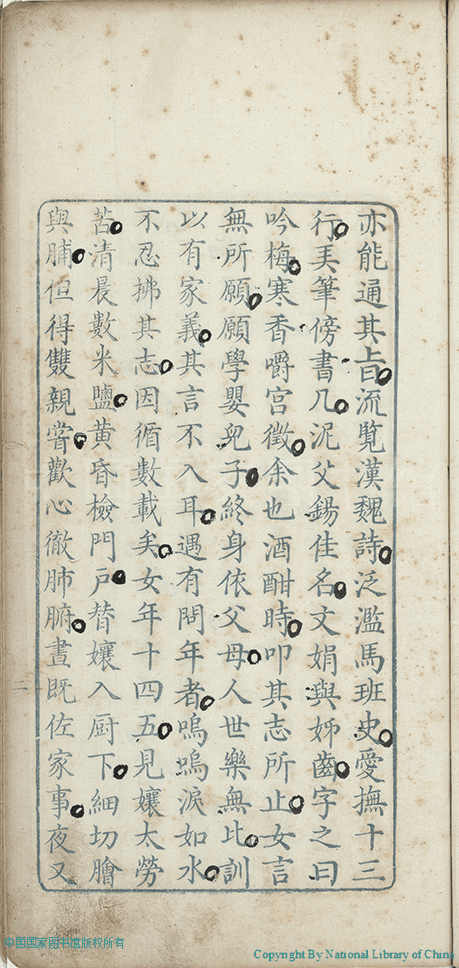 亦能通其旨流覽漢魏詩泛濫馬班史愛撫十三
行美筆傍書几泥父錫佳名文娟與姊齒字之曰
吟梅寒香嚼宮徵余也酒酣時叩其志所止女言
無所願願學嬰兒子終身依父母人世樂無比訓
以有家義其言不入耳遇有問年者嗚嗚淚如水
不忍拂其志因循數載矣女年十四五見孃太勞
苦清晨數米鹽黃昏檢門戶替孃入厨下細切膾
與脯但得雙親嘗歡心徹肺腑晝既佐家事夜又
二
中国国家图书馆版权所有
Copyright By National Library of China